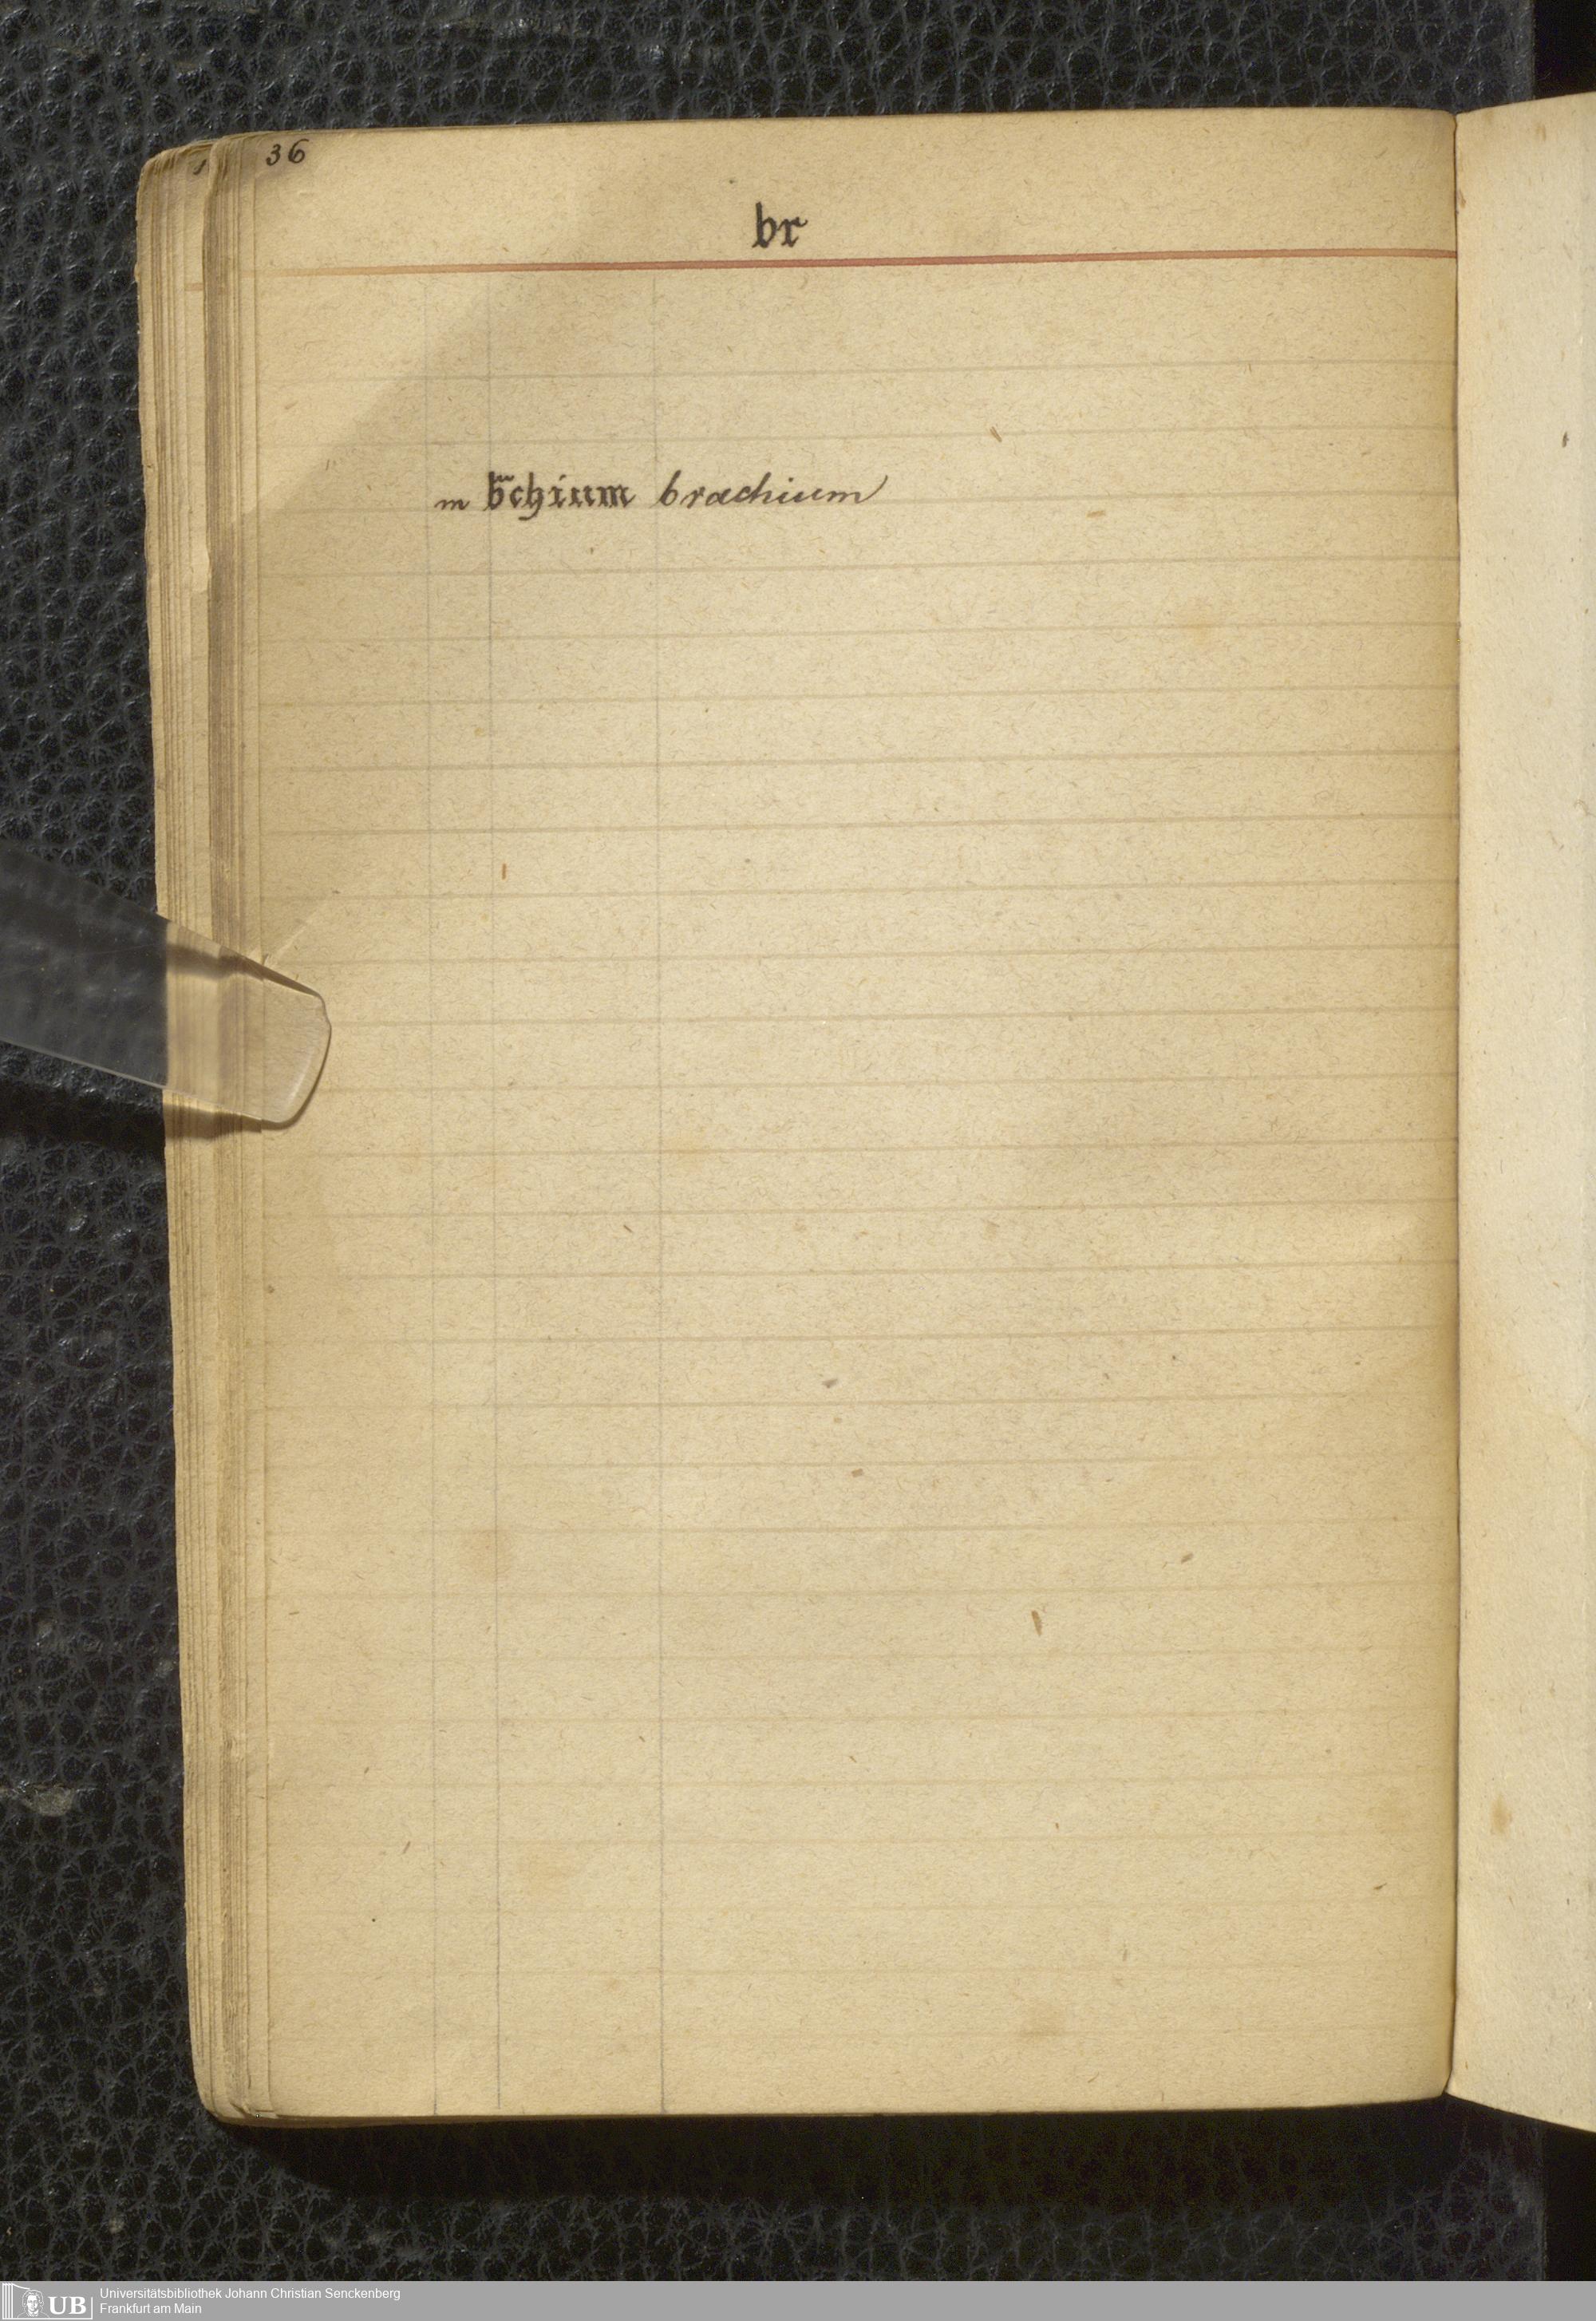 36
br
m b̃chium brachium
UB Universitätsbibliothek Johann Christian Senckenberg
Frankfurt am Main